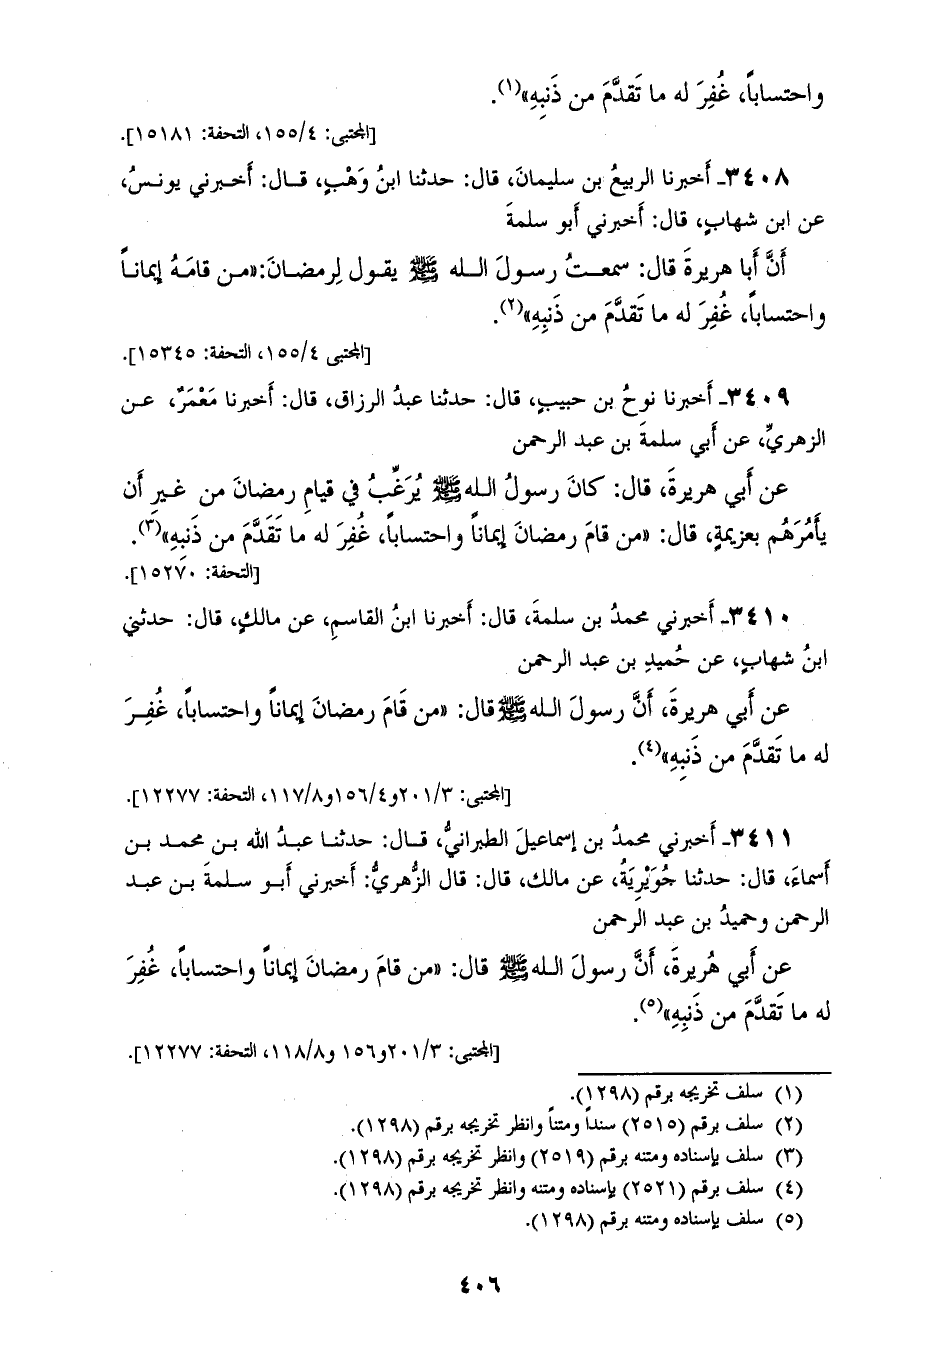 واحتساباً، غُفِرَ له ما تَقدَّمَ من ذَنبِهِ»(١).
[المجتبى: ١٥٥/٤، التحفة: ١٥١٨١].
٣٤٠٨ـ أَخبرنا الربيعُ بن سليمانَ، قال: حدثنا ابنُ وَهْبٍ، قـال: أَخـبرني يونـسُ،
عن ابن شهابٍ، قال: أَخبرني أَبو سلمةَ
أَنَّ أَبا هريرةَ قال: سمعـتُ رسـولَ اللـه ﷺ يقـول لِرمضـانَ:«مـن قامَـهُ إيمانـاً
واحتساباً، غُفِرَ له ما تَقدَّمَ من ذَنبِهِ»(٢).
[المجتبى ١٥٥/٤، التحفة: ١٥٣٤٥].
٣٤٠٩ـ أَخبرنا نوحُ بن حبيبٍ، قال: حدثنا عبدُ الرزاق، قال: أَخبرنا مَعْمَرٌ، عـن
الزهريِّ، عن أَبي سلمةَ بن عبد الرحمن
عن أَبي هريرةَ، قال: كانَ رسولُ اللـه ﷺ يُرَغِّبُ في قيامِ رمضانَ من غـيرِ أَن
يأْمُرَهُم بعزيمةٍ، قال: «من قامَ رمضانَ إيماناً واحتساباً، غُفِرَ له ما تَقَدَّمَ من ذَنبِهِ»(٣).
[التحفة: ١٥٢٧٠].
٣٤١٠ـ أَخبرني محمدُ بن سلمةَ، قال: أَخبرنا ابنُ القاسمِ، عن مالكٍ، قال: حدثني
ابنُ شهابٍ، عن حُميدِ بن عبد الرحمن
عن أَبي هريرةَ، أَنَّ رسولَ اللـه ﷺ قال: «من قَامَ رمضانَ إيماناً واحتساباً، غُفِـرَ
له ما تَقدَّمَ من ذَنبِهِ»(٤).
[المجتبى: ٢٠١/٣و١٥٦/٤و١١٧/٨، التحفة: ١٢٢٧٧].
٣٤١١ـ أَخبرني محمدُ بن إسماعيلَ الطبرانيُّ، قـال: حدثنـا عبـدُ الله بـن محمـد بـن
أَسماءَ، قال: حدثنا جُوَيْرِيَةُ، عن مالك، قال: قال الزُّهريُّ: أَخبرني أَبـو سـلمةَ بـن عبـد
الرحمن وحميدُ بن عبد الرحمن
عن أَبي هُريرةَ، أَنَّ رسولَ اللـه ﷺ قال: «من قامَ رمضانَ إيماناً واحتساباً، غُفِرَ
له ما تَقدَّمَ من ذَنبِهِ»(٥).
[المجتبى: ٢٠١/٣و١٥٦ و١١٨/٨، التحفة: ١٢٢٧٧].
(١) سلف تخريجه برقم (١٢٩٨).
(٢) سلف برقم (٢٥١٥) سنداً ومتناً وانظر تخريجه برقم (١٢٩٨).
(٣) سلف بإسناده ومتنه برقم (٢٥١٩) وانظر تخريجه برقم (١٢٩٨).
(٤) سلف برقم (٢٥٢١) بإسناده ومتنه وانظر تخريجه برقم (١٢٩٨).
(٥) سلف بإسناده ومتنه برقم (١٢٩٨).
٤٠٦